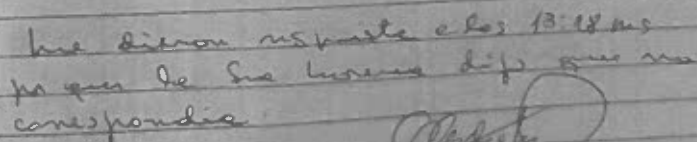 me dieron respuesta a las 13:28 hs
por que de Sra dijo que no
correspondia.